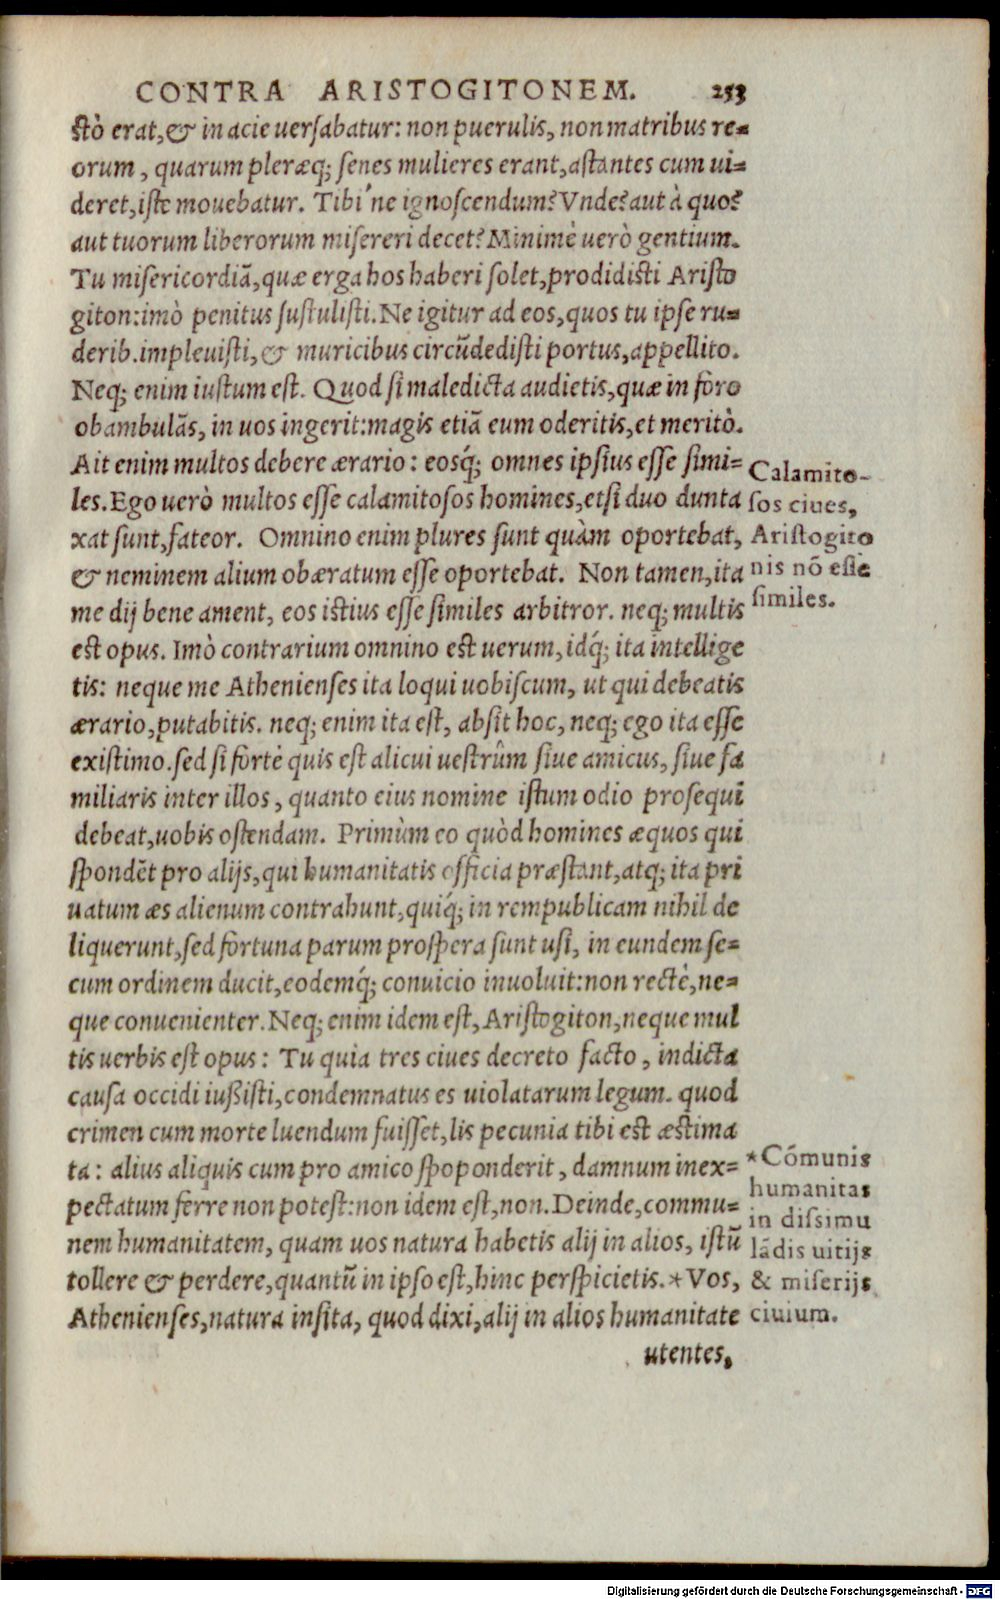 CONTRA ARISTOGITONEM. 253
stò erat,& in acie uersabatur: non puerulis, non matribus re=
orum, quarum pleræq; senes mulieres erant,astantes cum ui=
deret,iste mouebatur. Tibi'ne ignoscendum? Vnde? aut à quo?
aut tuorum liberorum misereri decet? Minimè uerò gentium.
Tu misericordiã,quæ erga hos haberi solet,prodidisti Aristo
giton:imò penitus sustulisti. Ne igitur ad eos,quos tu ipse ru=
derib.impleuisti,& muricibus circũdedisti portus,appellito.
Neq; enim iustum est. Quod si maledicta audietis,quæ in foro
obambulãs, in uos ingerit:magis etiã eum oderitis,et meritò.
Ait enim multos debere ærario: eosq́; omnes ipsius esse simi=
les. Ego uerò multos esse calamitosos homines,etsi duo dunta
xat sunt,fateor. Omnino enim plures sunt quàm oportebat,
& neminem alium obæratum esse oportebat. Non tamen,ita
me dij bene ament, eos istius esse similes arbitror. neq; multis
est opus. Imò contrarium omnino est uerum, idq́; ita intellige
tis: neque me Athenienses ita loqui uobiscum, ut qui debeatis
ærario,putabitis. neq; enim ita est, absit hoc, neq; ego ita esse
existimo. sed si fortè quis est alicui uestrûm siue amicus, siue fa
miliaris inter illos, quanto eius nomine istum odio prosequi
debeat,uobis ostendam. Primùm eo quòd homines æquos qui
spondẽt pro alijs,qui humanitatis officia præstant,atq; ita pri
uatum æs alienum contrahunt,quiq́; in rempublicam nihil de
liquerunt,sed fortuna parum prospera sunt usi, in eundem se=
cum ordinem ducit,eodemq́; conuicio inuoluit:non rectè,ne=
que conuenienter. Neq; enim idem est, Aristogiton,neque mul
tis uerbis est opus: Tu quia tres ciues decreto facto, indicta
causa occidi iußisti,condemnatus es uiolatarum legum. quod
crimen cum morte luendum fuisset,lis pecunia tibi est æstima
ta: alius aliquis cum pro amico spoponderit, damnum inex=
pectatum ferre non potest:non idem est,non. Deinde,commu=
nem humanitatem, quam uos natura habetis alij in alios, istũ
tollere & perdere,quantũ in ipso est,hinc perspicietis.*Vos,
Athenienses,natura insita, quod dixi,alij in alios humanitate
utentes,
Calamito-
sos ciues,
Aristogito
nis nõ esse
similes.
*Cõmunis
humanitas
in dissimu
lãdis uitijs
& miserijs
ciuium.
Digitalisierung gefördert durch die Deutsche Forschungsgemeinschaft - DFG